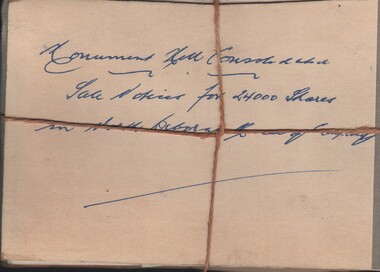 Monument Hill Consolidated
Sale Notices for 24000 Shares
in North Deborah Mining Company